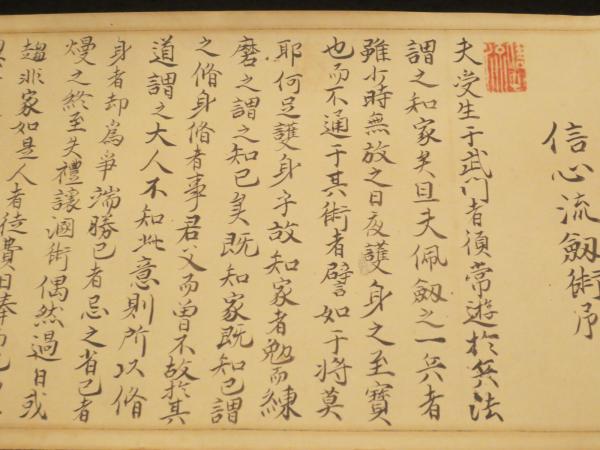 信心流劔術序
夫受生于武門者須常遊於兵法
謂之知家矣且夫佩劔之一兵者
雖少時無放之日夜護身之至寶
也而不通于其術者譬如于將莫
耶何足護身乎故知家者勉而練
磨之謂之知已矣既知家既知已謂
之脩身脩者事君父而曾不故於其
道謂之大人不知此意則所以脩
身者却為爭端勝已者忌之省已者
熳之終至失禮讓溷術偶然過日或
趨非家如是人者徒費田奉而已